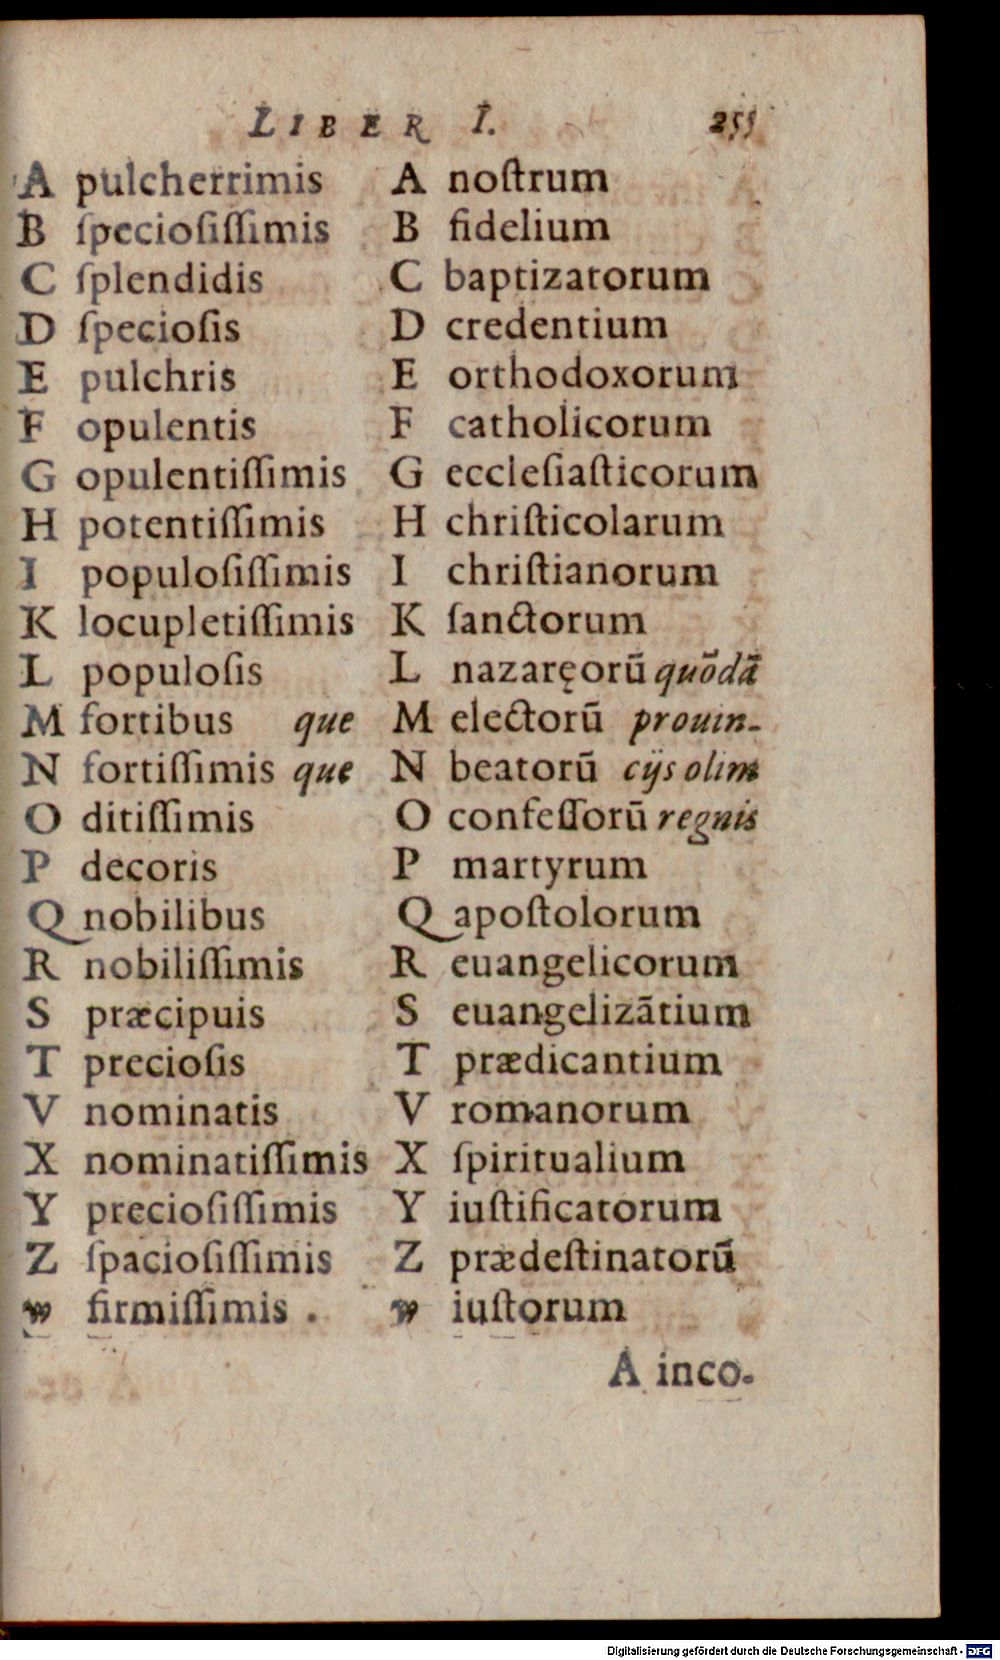 LIBER I. 255
A pulcherrimis
B ſpecioſiſſimis
C ſplendidis
D ſpecioſis
E pulchris
F opulentis
G opulentiſſimis
H potentiſſimis
I populoſiſſimis
K locupletiſſimis
L populoſis
M fortibus que
N fortiſſimis que
O ditiſſimis
P decoris
Q nobilibus
R nobiliſſimis
S præcipuis
T precioſis
V nominatis
X nominatiſſimis
Y precioſiſſimis
Z ſpacioſiſſimis
w firmiſſimis .
A noſtrum
B fidelium
C baptizatorum
D credentium
E orthodoxorum
F catholicorum
G eccleſiaſticorum
H chriſticolarum
I chriſtianorum
K ſanctorum
L nazaręorū quōdā
M electorū prouin-
N beatorū cijs olim
O confeſſorū regnis
P martyrum
Q apoſtolorum
R euangelicorum
S euangelizātium
T prædicantium
V romanorum
X ſpiritualium
Y iuſtificatorum
Z prædeſtinatorū
w iuſtorum
A inco-
Digitalisierung gefördert durch die Deutsche Forschungsgemeinschaft - DFG